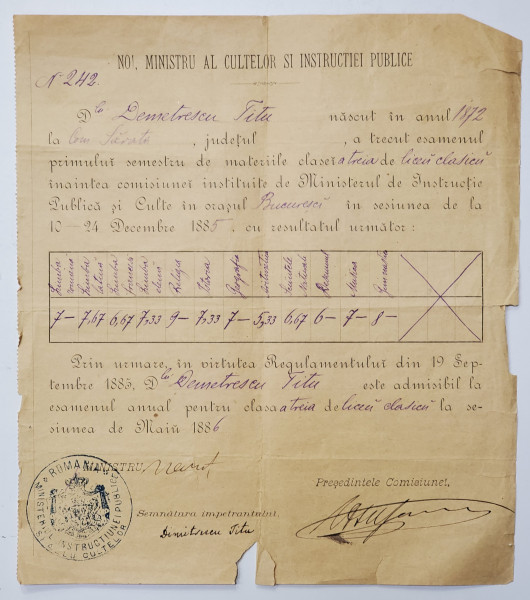 NOI, MINISTRU AL CULTELOR SI INSTRUCTIEI PUBLICE
No 242.
Dlo Demetrescu Titu născut în anul 1872
la Com. Sărata, județul , a trecut esamenul
primului semestru de materiile clasei a treia de liceu clasicu
înaintea comisiunei instituite de Ministerul de Instrucție
Publică și Culte în orașul Bucuresci în sesiunea de la
10—24 Decembre 1885, cu resultatul următor:
Limba română Limba latină Limba francesă Limba elenă Religia Istoria Geografia Aritmetica Sciintele naturale Desemnul Musica Gimnastica
7— 7,67 6,67 7,33 9— 7,33 7— 5,33 6,67 6— 7— 8—
Prin urmare, în virtutea Regulamentului din 19 Sep-
tembre 1885, Dlui Demetrescu Titu este admisibil la
esamenul anual pentru clasa a treia de liceu clasicu la se-
siunea de Maiŭ 1886
MINISTRU,
Președintele Comisiunei,
Semnătura impetrantului,
Dimitrescu Titu
ROMANIA
MINISTERUL INSTRUCTIUNEI PUBLICE
SI AL CULTELOR